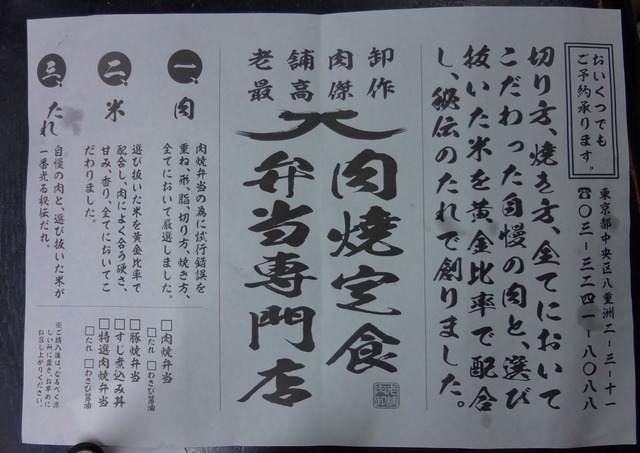 おいくつでも
ご予約承ります。
東京都中央区八重洲二－三－十一
☎〇三－三二四一－八〇八八
切り方、焼き方、全てにおいて
こだわった自慢の肉と、選び
抜いた米を黄金比率で配合
し、秘伝のたれで創りました。
卸作
肉傑
舗高
老最
肉焼定食
弁当専門店
一、肉
肉焼弁当の為に試行錯誤を
重ね、形、脂、切り方、焼き方、
全てにおいて厳選しました。
二、米
選び抜いた米を黄金比率で
配合し、肉によく合う硬さ、
甘み、香り、全てにおいてこ
だわりました。
三、たれ
自慢の肉と、選び抜いた米が
一番光る秘伝だれ。
□肉焼弁当
□たれ □わさび醤油
□豚焼弁当
□すじ煮込み丼
□特選肉焼弁当
□たれ □わさび醤油
※ご購入後は、なるべく涼
しい所に置き、お早めに
お召し上がりください。